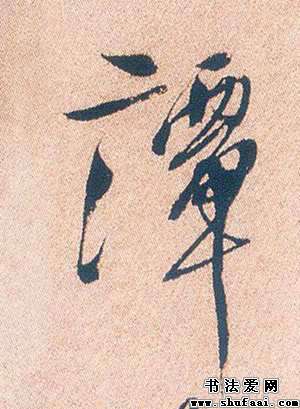 譚
书法爱网
www.shufaai.com